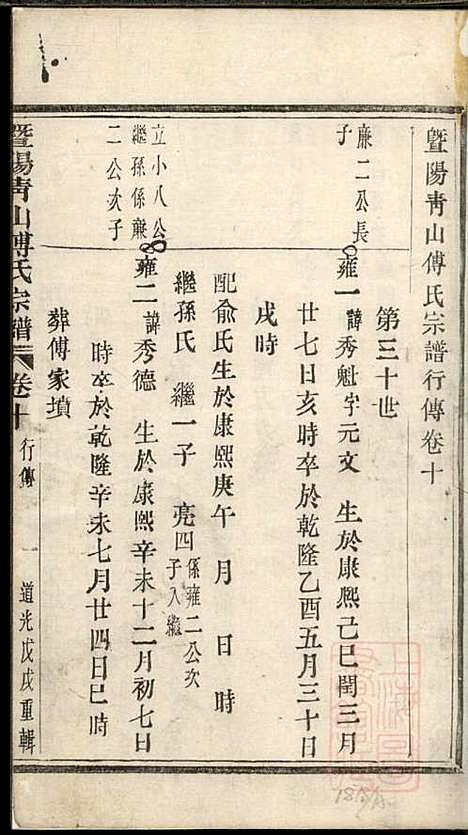 暨陽青山傅氏宗譜行傳卷十
第三十世
廉二公長
子
雍一 諱秀魁字元文 生於康熙己巳閏三月
廿七日亥時卒於乾隆乙酉五月三十日
戌時
配俞氏生於康熙庚午 月 日 時
繼孫氏 繼一子 亮四 係雍二公次
子入繼
立小八公
繼孫係蘼
二公次子
雍二 諱秀德 生於康熙辛未十二月初七日
時卒於乾隆辛未七月廿四日巳時
葬傅家墳
暨陽青山傅氏宗譜 卷十 行傳 一 道光戊戌重輯